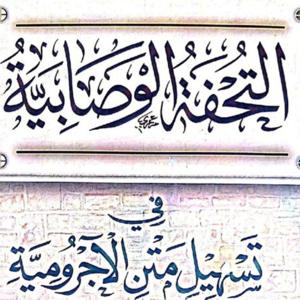 التُّحْفَةُ الْوَصَابِيَّةُ
فِي
تَسْهِيلِ مَتْنِ الْآجُرُومِيَّةِ